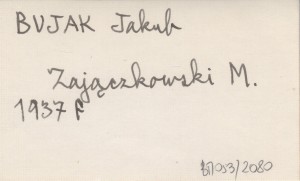 BUJAK Jakub
Zajączkowski M.
1937 F
053/2080